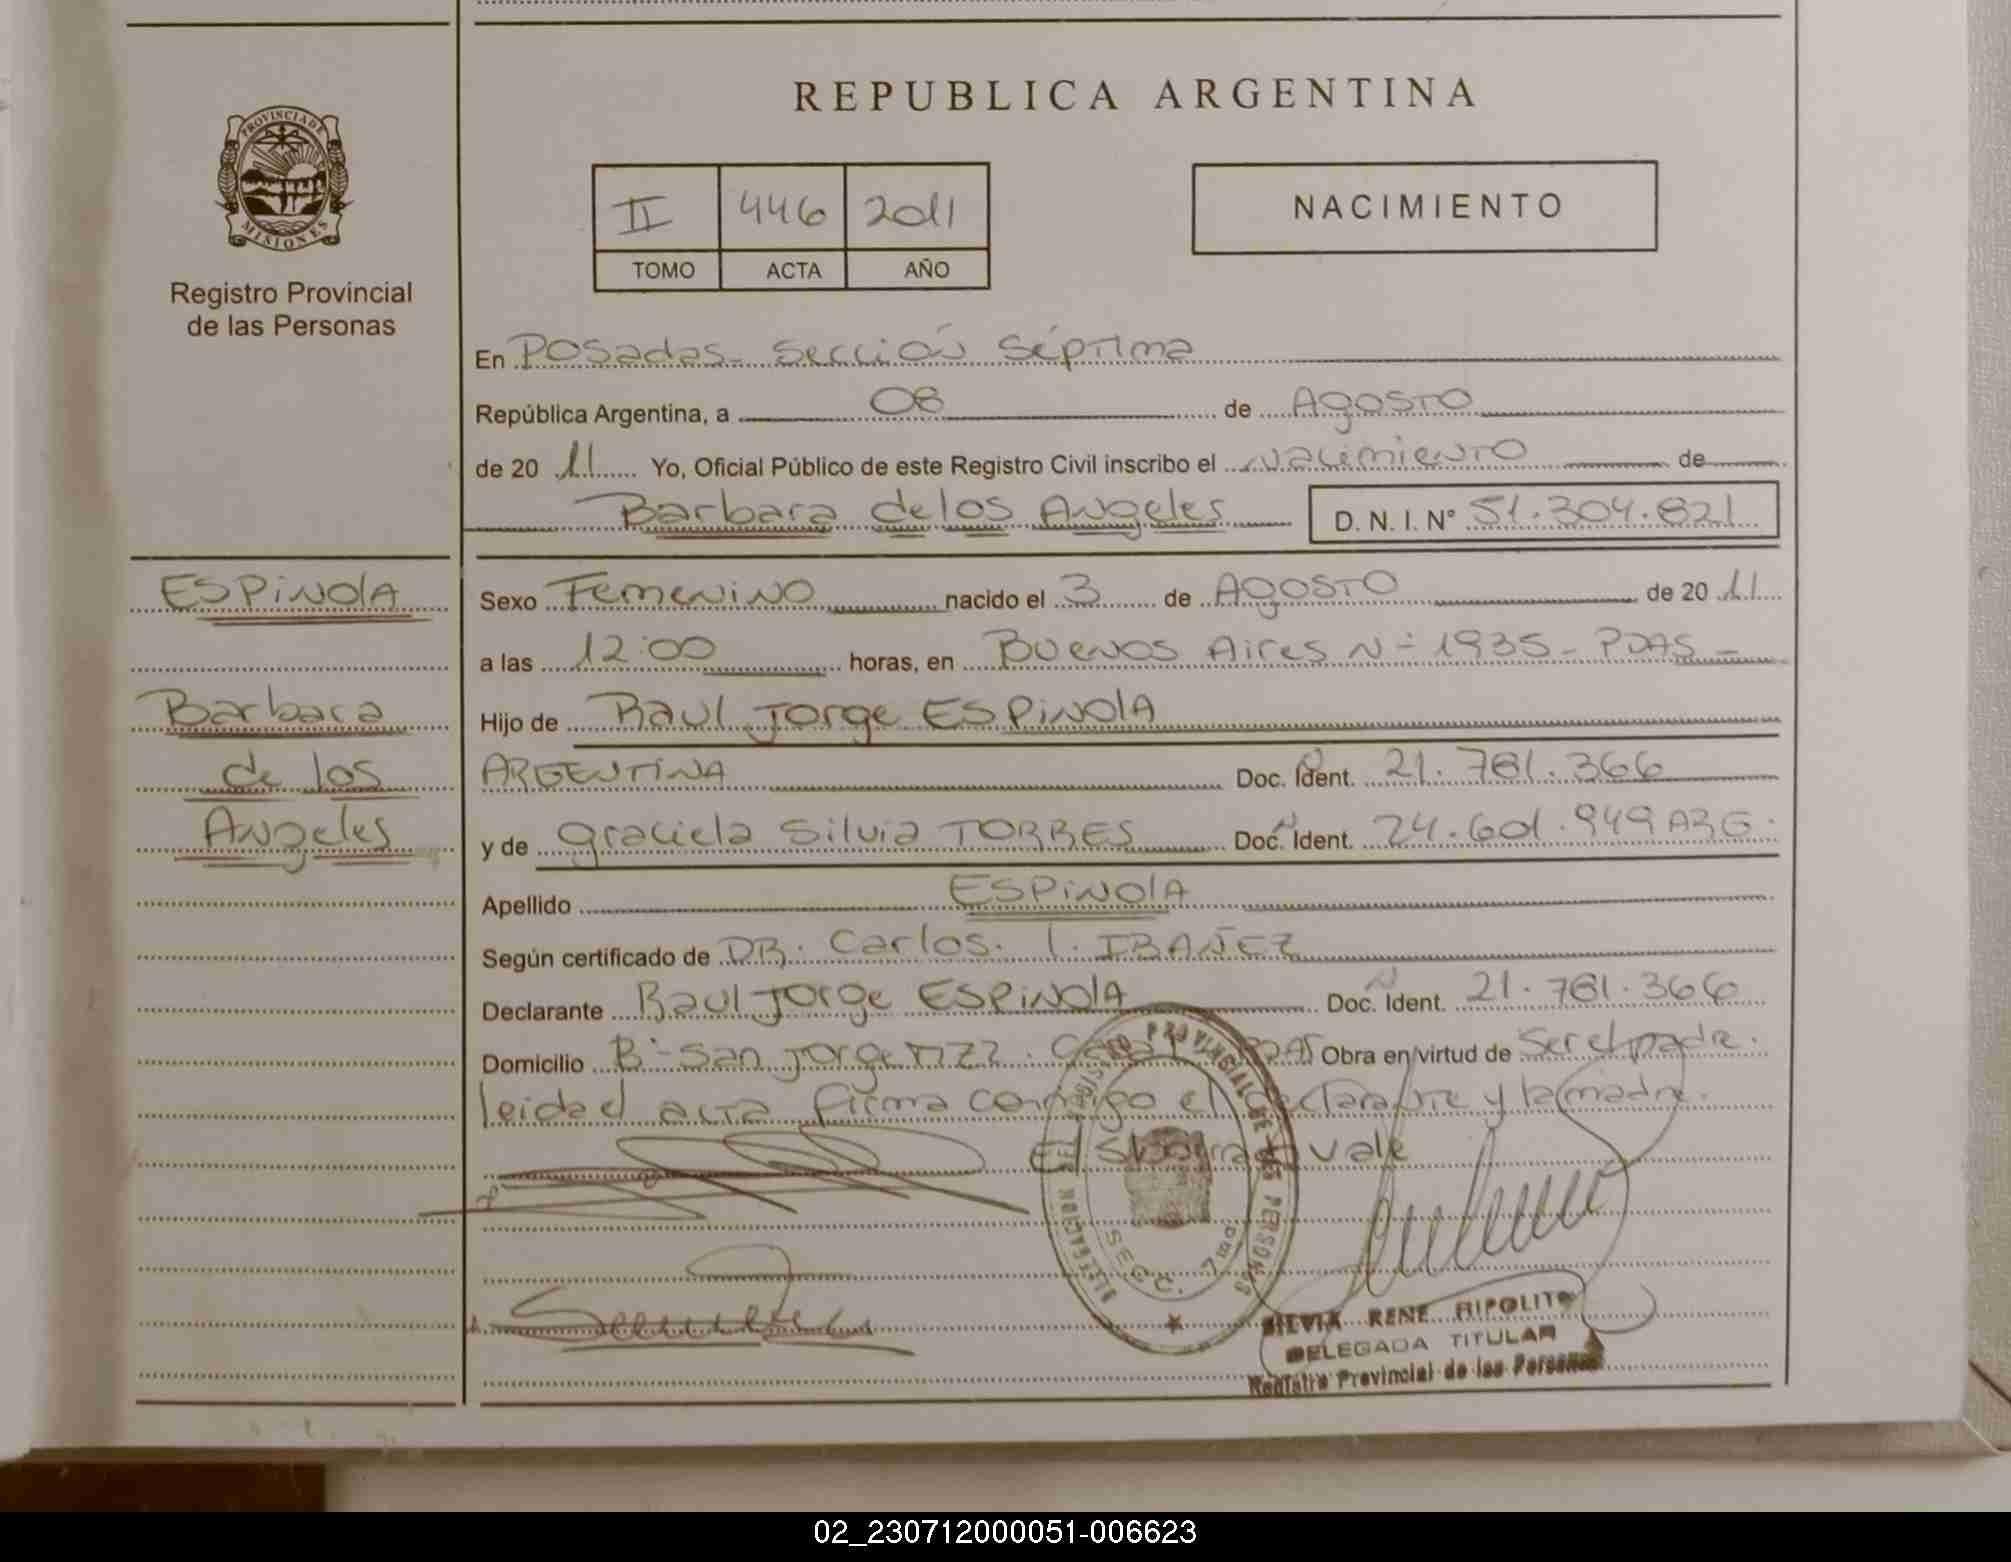 REPUBLICA ARGENTINA
PROVINCIA DE
MISIONES
Registro Provincial
de las Personas
II 446 2011
TOMO ACTA AÑO
NACIMIENTO
En Posadas - Sección Séptima
República Argentina, a 08 de Agosto
de 20 11 Yo, Oficial Público de este Registro Civil inscribo el Nacimiento de
Barbara de los Angeles D. N. I. N° 51.304.821
ESPINOLA
Barbara
de los
Angeles
Sexo Femenino nacido el 3 de Agosto de 20 11
a las 12:00 horas, en Buenos Aires N- 1935 - PDAS -
Hijo de Raul Jorge ESPINOLA
ARGENTINA Doc. Ident. 21.781.366
y de Graciela Silvia TORRES Doc. Ident. 24.601.949 ARG.
Apellido ESPINOLA
Según certificado de DR. Carlos. I. IBAÑEZ
Declarante Raul Jorge ESPINOLA Doc. Ident. 21.781.366
Domicilio B- San Jorge Obra en virtud de Ser el padre.
leida el acta firma conmigo el declarante y la madre.
vale
DELEGACION DEL REGISTRO PROVINCIAL DE LAS PERSONAS
SECC. 7ma
SILVIA RENE RIPOLITO
DELEGADA TITULAR
Registro Provincial de las Personas
02_230712000051-006623